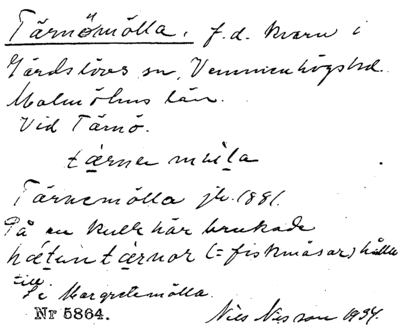 Tärnömölla. f.d. kvarn i
Gärdslövs sn, Vemmenhögshd.
Malmöhus län.
Vid Tärnö.
tärne
Tärnemölla jb. 1881.
På en kulle här brukade
tärnor (= fiskmåsar) hålla
till.
Se Margretemölla.
Nr 5864.
Nils Nilsson 1934.